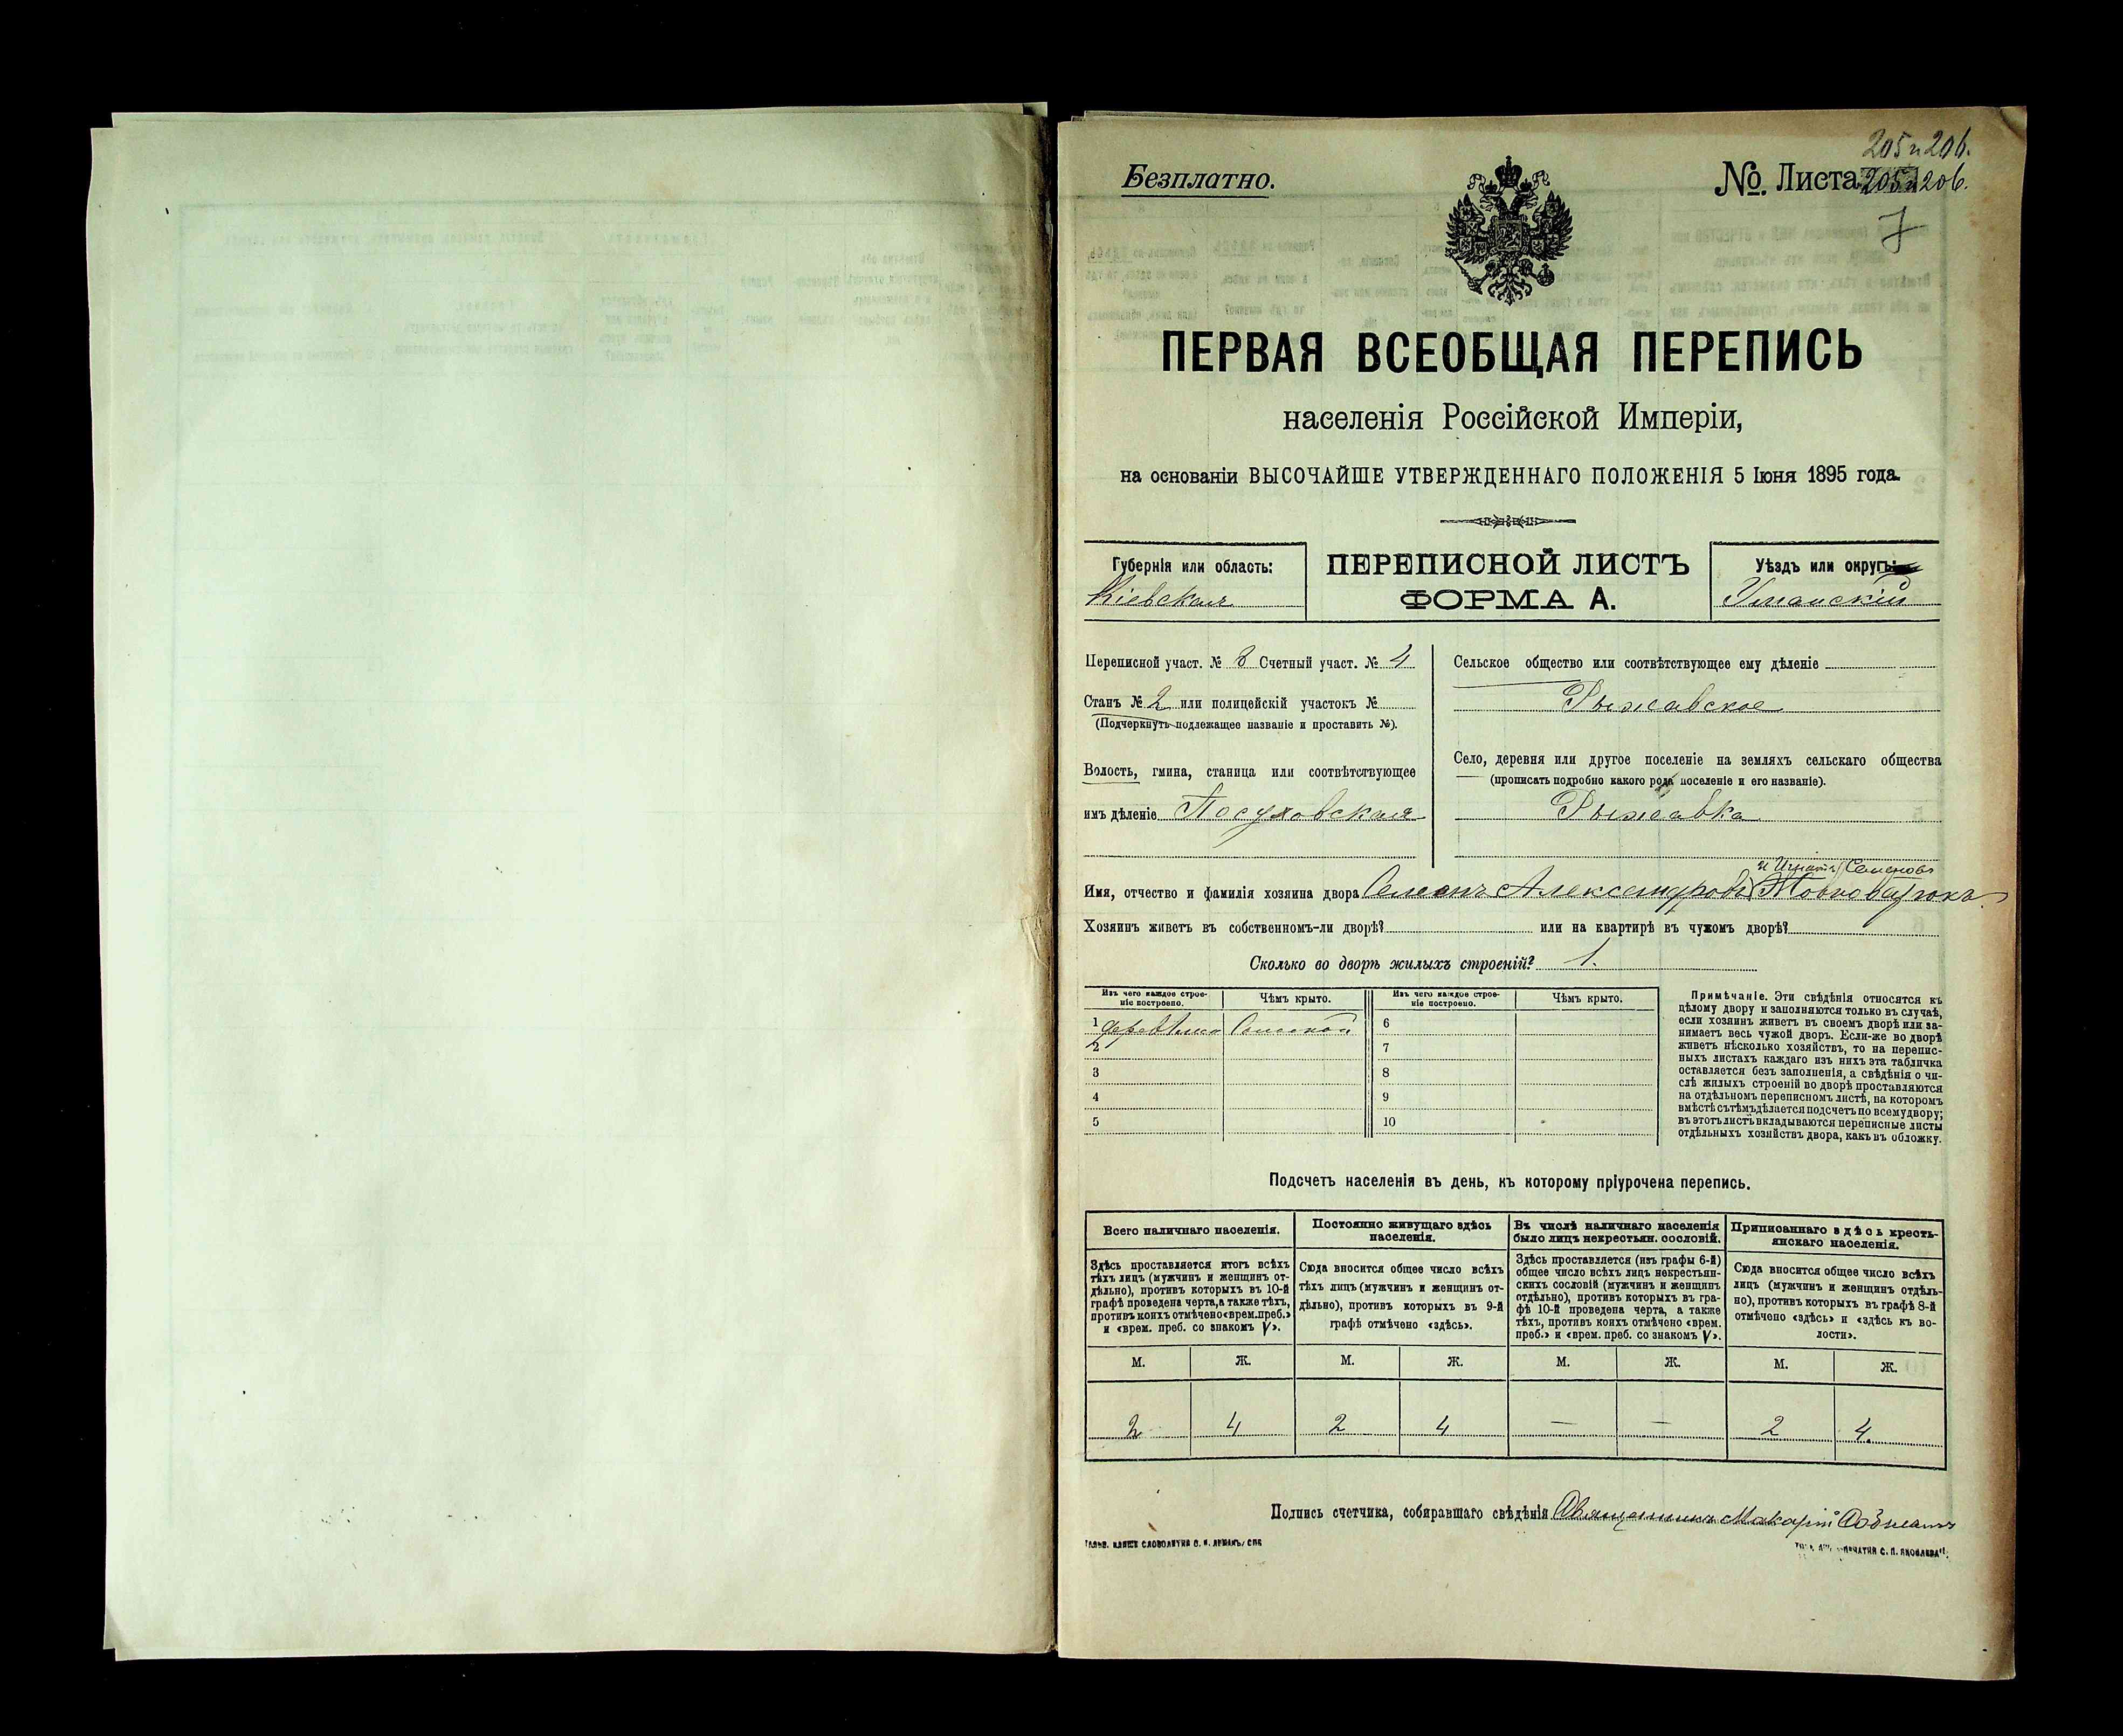 205 и 206.
Безплатно.
№ Листа 205 и 206.
7
ПЕРВАЯ ВСЕОБЩАЯ ПЕРЕПИСЬ
населенія Россійской Имперіи,
на основаніи ВЫСОЧАЙШЕ УТВЕРЖДЕННАГО ПОЛОЖЕНІЯ 5 Іюня 1895 года.
Губернія или область:
Кіевская
ПЕРЕПИСНОЙ ЛИСТЪ
ФОРМА А.
Уѣздъ или округъ:
Уманскій
Переписной участ. № 3 Счетный участ. № 4
Станъ № 2 или полицейскій участокъ №
(Подчеркнуть подлежащее названіе и проставить №).
Волость, гмина, станица или соотвѣтствующее
имъ дѣленіе Посуховская
Сельское общество или соотвѣтствующее ему дѣленіе
Рыжавское
Село, деревня или другое поселеніе на земляхъ сельскаго общества
(прописать подробно какого рода поселеніе и его названіе).
Рыжавка
и Игнатъ Семеновъ
Имя, отчество и фамилія хозяина двора Семенъ Александровъ
Хозяинъ живетъ въ собственномъ-ли дворѣ? или на квартирѣ въ чужомъ дворѣ?
Сколько во дворѣ жилыхъ строеній? 1.
Изъ чего каждое строе-
ніе построено.
Чѣмъ крыто.
Изъ чего каждое строе-
ніе построено.
Чѣмъ крыто.
1 Соломой 6
2 7
3 8
4 9
5 10
Примѣчаніе. Эти свѣдѣнія относятся къ
цѣлому двору и заполняются только въ случаѣ,
если хозяинъ живетъ въ своемъ дворѣ или за-
нимаетъ весь чужой дворъ. Если-же во дворѣ
живетъ нѣсколько хозяйствъ, то на перепис-
ныхъ листахъ каждаго изъ нихъ эта табличка
оставляется безъ заполненія, а свѣдѣнія о чи-
слѣ жилыхъ строеній во дворѣ проставляются
на отдѣльномъ переписномъ листѣ, на которомъ
вмѣстѣ съ тѣмъ дѣлается подсчетъ по всему двору;
въ этотъ листъ вкладываются переписные листы
отдѣльныхъ хозяйствъ двора, какъ въ обложку.
Подсчетъ населенія въ день, къ которому пріурочена перепись.
Всего наличнаго населенія.
Здѣсь проставляется итогъ всѣхъ
тѣхъ лицъ (мужчинъ и женщинъ от-
дѣльно), противъ которыхъ въ 10-й
графѣ проведена черта, а также тѣхъ,
противъ коихъ отмѣчено «врем. преб.»
и «врем. преб. со знакомъ V».
Постоянно живущаго здѣсь
населенія.
Сюда вносится общее число всѣхъ
тѣхъ лицъ (мужчинъ и женщинъ от-
дѣльно), противъ которыхъ въ 9-й
графѣ отмѣчено «здѣсь».
Въ числѣ наличнаго населенія
было лицъ некрестьян. сословій.
Здѣсь проставляется (изъ графы 6-й)
общее число всѣхъ лицъ некрестьян-
скихъ сословій (мужчинъ и женщинъ
отдѣльно), противъ которыхъ въ гра-
фѣ 10-й проведена черта, а также
тѣхъ, противъ коихъ отмѣчено «врем.
преб.» и «врем. преб. со знакомъ V».
Приписаннаго здѣсь кресть-
янскаго населенія.
Сюда вносится общее число всѣхъ
лицъ (мужчинъ и женщинъ отдѣль-
но), противъ которыхъ въ графѣ 8-й
отмѣчено «здѣсь» и «здѣсь къ во-
лости».
М. Ж. М. Ж. М. Ж. М. Ж.
2 4 2 4 — — 2 4.
Подпись счетчика, собиравшаго свѣдѣнія Священникъ Макарій